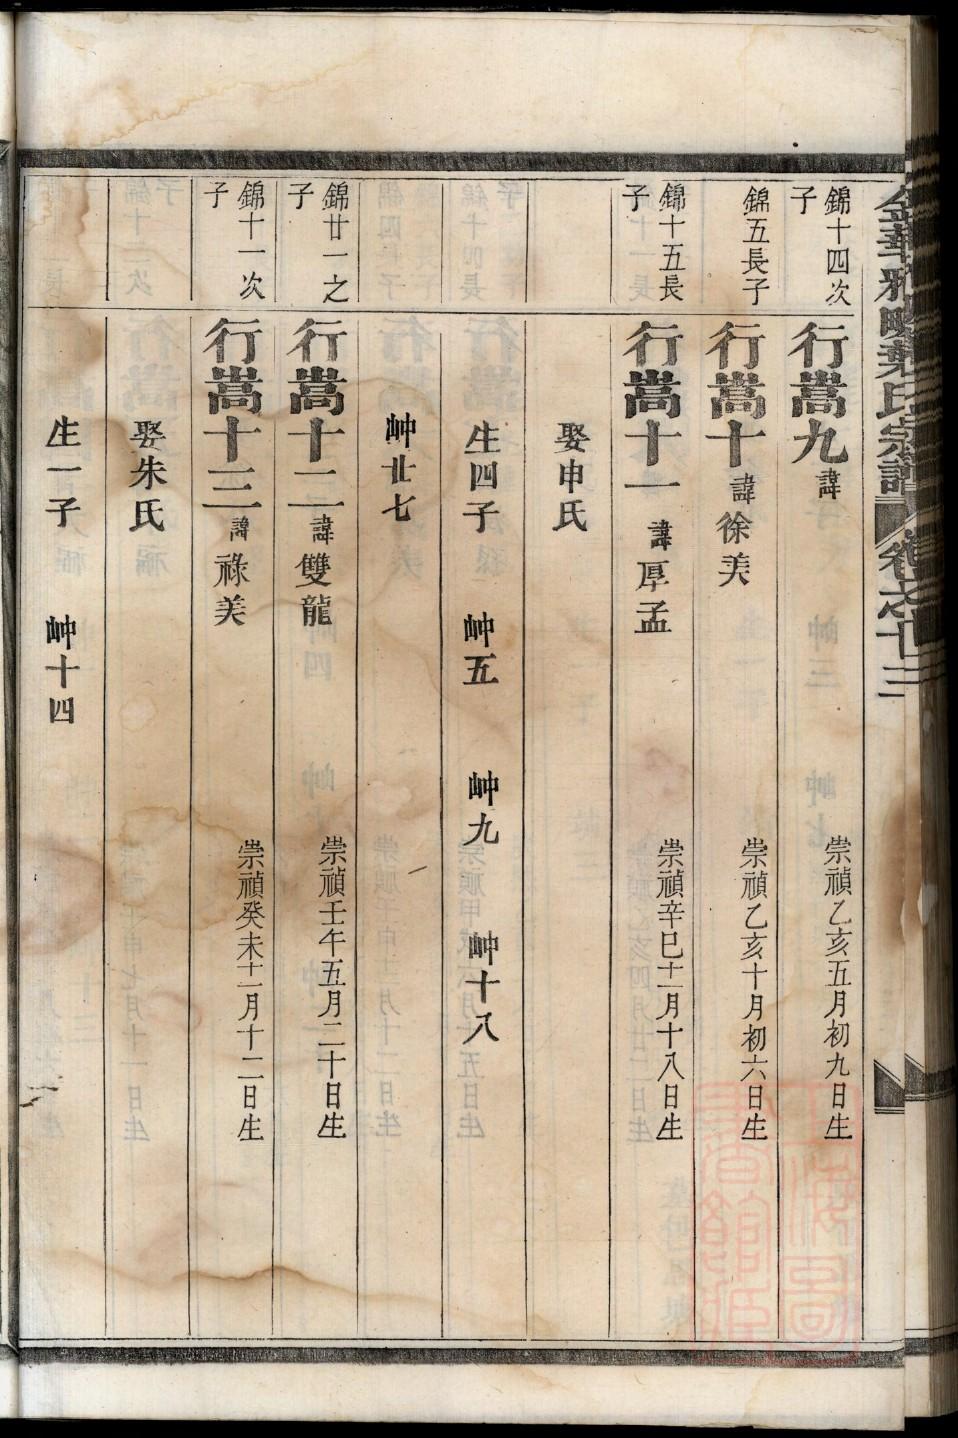 錦十四次
子
行嵩九 諱 崇禎乙亥五月初九日生
錦五長子
行嵩十 諱徐美 崇禎乙亥十月初六日生
錦十五長
子
行嵩十一 諱厚孟 崇禎辛巳十一月十八日生
娶申氏
生四子 岫五 岫九 岫十八
岫廿七
錦廿一之
子
行嵩十二 諱雙龍 崇禎壬午五月二十日生
錦十一次
子
行嵩十三 諱祿美 崇禎癸未十一月十二日生
娶朱氏
生一子 岫十四